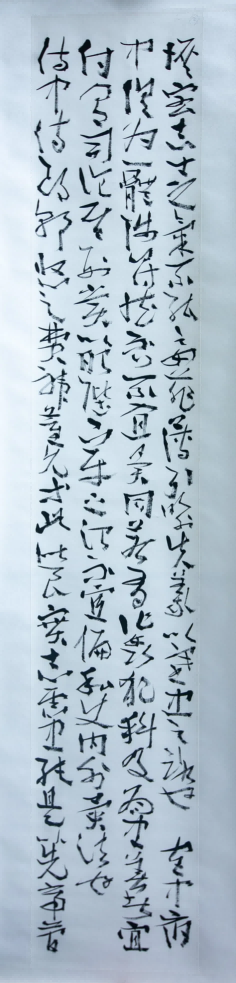 恢宏志士之氣不宜妄自菲薄引喻失義以塞忠諫之路也 宮中府
中俱為一體陟罰臧否不宜異同若有作姦犯科及為忠善者宜
付有司論其刑賞以昭陛下平明之治不宜偏私使內外異法也
侍中侍郎郭攸之費禕董允等此皆良實志慮忠純是以先帝簡